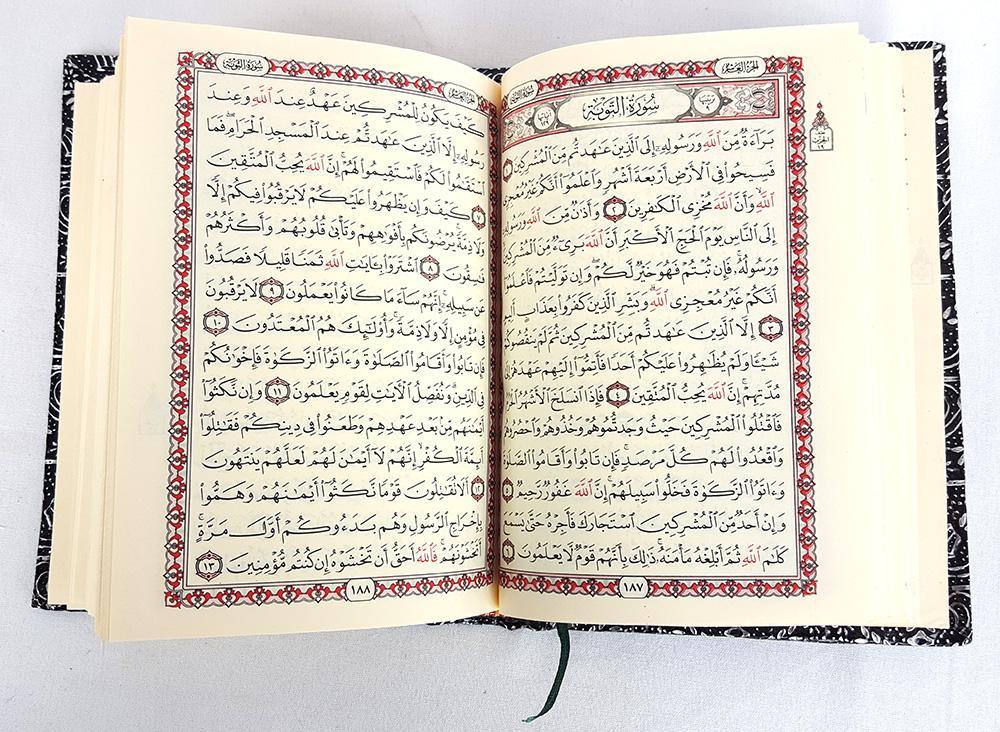 الجزء العاشر
سورة التوبة
سُورَةُ التَّوْبَةِ
بَرَآءَةٌ مِّنَ ٱللَّهِ وَرَسُولِهِۦٓ إِلَى ٱلَّذِينَ عَٰهَدتُّم مِّنَ ٱلْمُشْرِكِينَ ١
فَسِيحُوا۟ فِى ٱلْأَرْضِ أَرْبَعَةَ أَشْهُرٍ وَٱعْلَمُوٓا۟ أَنَّكُمْ غَيْرُ مُعْجِزِى
ٱللَّهِ وَأَنَّ ٱللَّهَ مُخْزِى ٱلْكَٰفِرِينَ ٢ وَأَذَٰنٌ مِّنَ ٱللَّهِ وَرَسُولِهِۦٓ
إِلَى ٱلنَّاسِ يَوْمَ ٱلْحَجِّ ٱلْأَكْبَرِ أَنَّ ٱللَّهَ بَرِىٓءٌ مِّنَ ٱلْمُشْرِكِينَ
وَرَسُولُهُۥ فَإِن تُبْتُمْ فَهُوَ خَيْرٌ لَّكُمْ وَإِن تَوَلَّيْتُمْ فَٱعْلَمُوٓا۟
أَنَّكُمْ غَيْرُ مُعْجِزِى ٱللَّهِ وَبَشِّرِ ٱلَّذِينَ كَفَرُوا۟ بِعَذَابٍ أَلِيمٍ
٣ إِلَّا ٱلَّذِينَ عَٰهَدتُّم مِّنَ ٱلْمُشْرِكِينَ ثُمَّ لَمْ يَنقُصُوكُمْ
شَيْـًٔا وَلَمْ يُظَٰهِرُوا۟ عَلَيْكُمْ أَحَدًا فَأَتِمُّوٓا۟ إِلَيْهِمْ عَهْدَهُمْ إِلَىٰ
مُدَّتِهِمْ إِنَّ ٱللَّهَ يُحِبُّ ٱلْمُتَّقِينَ ٤ فَإِذَا ٱنسَلَخَ ٱلْأَشْهُرُ ٱلْحُرُمُ
فَٱقْتُلُوا۟ ٱلْمُشْرِكِينَ حَيْثُ وَجَدتُّمُوهُمْ وَخُذُوهُمْ وَٱحْصُرُوهُمْ
وَٱقْعُدُوا۟ لَهُمْ كُلَّ مَرْصَدٍ فَإِن تَابُوا۟ وَأَقَامُوا۟ ٱلصَّلَوٰةَ
وَءَاتَوُا۟ ٱلزَّكَوٰةَ فَخَلُّوا۟ سَبِيلَهُمْ إِنَّ ٱللَّهَ غَفُورٌ رَّحِيمٌ ٥
وَإِنْ أَحَدٌ مِّنَ ٱلْمُشْرِكِينَ ٱسْتَجَارَكَ فَأَجِرْهُ حَتَّىٰ يَسْمَعَ
كَلَٰمَ ٱللَّهِ ثُمَّ أَبْلِغْهُ مَأْمَنَهُۥ ذَٰلِكَ بِأَنَّهُمْ قَوْمٌ لَّا يَعْلَمُونَ ٦
١٨٧
الجزء العاشر
سورة التوبة
كَيْفَ يَكُونُ لِلْمُشْرِكِينَ عَهْدٌ عِندَ ٱللَّهِ وَعِندَ
رَسُولِهِۦٓ إِلَّا ٱلَّذِينَ عَٰهَدتُّمْ عِندَ ٱلْمَسْجِدِ ٱلْحَرَامِ فَمَا
ٱسْتَقَٰمُوا۟ لَكُمْ فَٱسْتَقِيمُوا۟ لَهُمْ إِنَّ ٱللَّهَ يُحِبُّ ٱلْمُتَّقِينَ
٧ كَيْفَ وَإِن يَظْهَرُوا۟ عَلَيْكُمْ لَا يَرْقُبُوا۟ فِيكُمْ إِلًّا
وَلَا ذِمَّةً يُرْضُونَكُم بِأَفْوَٰهِهِمْ وَتَأْبَىٰ قُلُوبُهُمْ وَأَكْثَرُهُمْ
فَٰسِقُونَ ٨ ٱشْتَرَوْا۟ بِـَٔايَٰتِ ٱللَّهِ ثَمَنًا قَلِيلًا فَصَدُّوا۟
عَن سَبِيلِهِۦٓ إِنَّهُمْ سَآءَ مَا كَانُوا۟ يَعْمَلُونَ ٩ لَا يَرْقُبُونَ
فِى مُؤْمِنٍ إِلًّا وَلَا ذِمَّةً وَأُو۟لَٰٓئِكَ هُمُ ٱلْمُعْتَدُونَ ١٠
فَإِن تَابُوا۟ وَأَقَامُوا۟ ٱلصَّلَوٰةَ وَءَاتَوُا۟ ٱلزَّكَوٰةَ فَإِخْوَٰنُكُمْ
فِى ٱلدِّينِ وَنُفَصِّلُ ٱلْـَٔايَٰتِ لِقَوْمٍ يَعْلَمُونَ ١١ وَإِن نَّكَثُوٓا۟
أَيْمَٰنَهُم مِّنۢ بَعْدِ عَهْدِهِمْ وَطَعَنُوا۟ فِى دِينِكُمْ فَقَٰتِلُوٓا۟
أَئِمَّةَ ٱلْكُفْرِ إِنَّهُمْ لَآ أَيْمَٰنَ لَهُمْ لَعَلَّهُمْ يَنتَهُونَ
١٢ أَلَا تُقَٰتِلُونَ قَوْمًا نَّكَثُوٓا۟ أَيْمَٰنَهُمْ وَهَمُّوا۟
بِإِخْرَاجِ ٱلرَّسُولِ وَهُم بَدَءُوكُمْ أَوَّلَ مَرَّةٍ
أَتَخْشَوْنَهُمْ فَٱللَّهُ أَحَقُّ أَن تَخْشَوْهُ إِن كُنتُم مُّؤْمِنِينَ ١٣
١٨٨